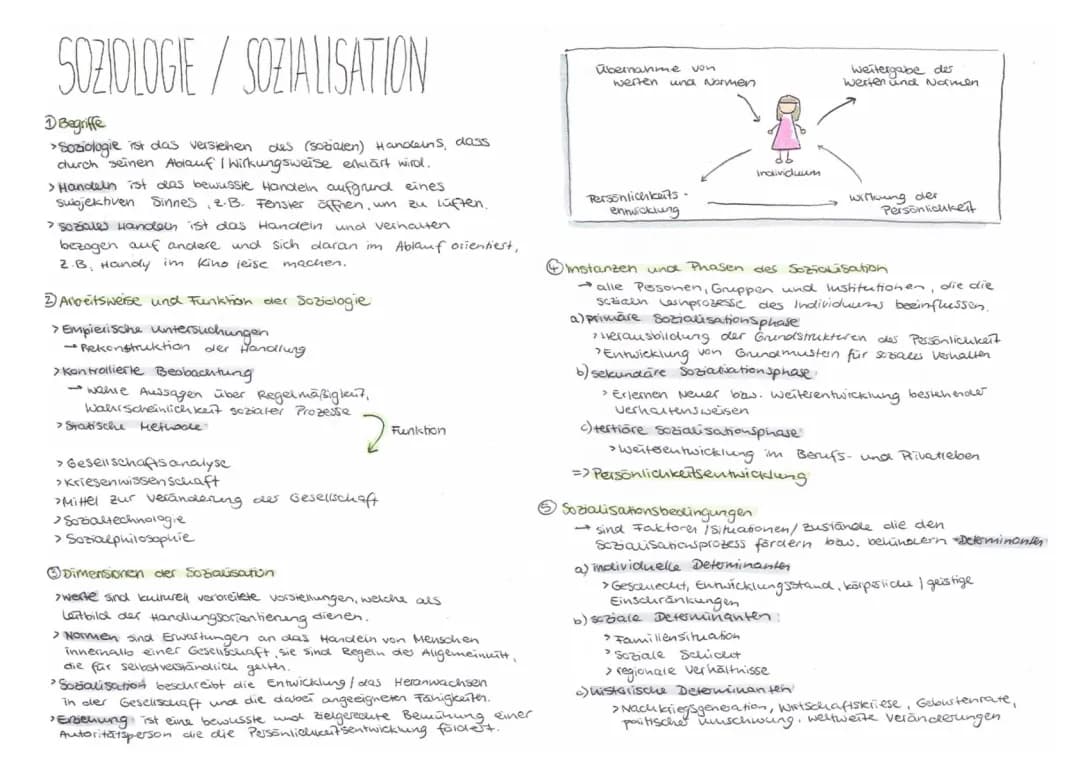 SOZIOLOGIE / SOZIALISATION
① Begriffe
> Soziologie ist das verstehen des (sozialen) Handelns, dass
durch seinen Ablauf / Wirkungsweise erklärt wird.
> Handeln ist das bewusste Handeln aufgrund eines
subjektiven Sinnes, z.B. Fenster öffnen, um zu lüften.
> soziales Handeln ist das Handeln und verhalten
bezogen auf andere und sich daran im Ablauf orientiert,
z.B. Handy im Kino leise machen.
② Arbeitsweise und Funktion der Soziologie
> Empierische untersuchungen
→ Rekonstruktion der Handlung
> Kontrollierte Beobachtung
→ wahre Aussagen über Regelmäßigkeit,
Wahrscheinlichkeit sozialer Prozesse
> Statische Methode
Funktion
> Gesellschaftsanalyse
> Kriesenwissenschaft
> Mittel zur veränderung der Gesellschaft
> Sozialtechnologie
> Sozialphilosophie
③ Dimensionen der Sozialisation
> werte sind kulturell verbreitete vorstellungen, welche als
Leitbild der Handlungsorientierung dienen.
> Normen sind Erwartungen an das Handeln von Menschen
innerhalb einer Gesellschaft, sie sind Regeln der Allgemeinheit,
die für selbstverständlich gelten.
> Sozialisation beschreibt die Entwicklung / das Heranwachsen
in der Gesellschaft und die dabei angeeigneten Fähigkeiten.
> Erziehung ist eine bewusste und zielgerechte Bemühung einer
Autoritätsperson die die Persönlichkeitsentwicklung fördert.
Übernahme von
werten und Normen
weitergabe der
werten und Normen
Individuum
Persönlichkeits-
entwicklung
wirkung der
Persönlichkeit
④ Instanzen und Phasen der Sozialisation
→ alle Personen, Gruppen und Institutionen, die die
sozialen Lernprozesse des Individuums beeinflussen.
a) primäre Sozialisationsphase
> Herausbildung der Grundstrukturen der Persönlichkeit
> Entwicklung von Grundmustern für soziales verhalten
b) sekundäre Sozialisationsphase
> Erlernen Neuer bzw. weiterentwicklung bestehender
verhaltensweisen
c) tertiäre Sozialisationsphase
> weiterentwicklung im Berufs- und Privatleben
=> Persönlichkeitsentwicklung
⑤ Sozialisationsbedingungen
→ sind Faktoren / Situationen / zustände die den
Sozialisationsprozess fördern bzw. behindern → Determinanten
a) individuelle Determinanten
> Geschlecht, Entwicklungsstand, körperliche / geistige
Einschränkungen
b) soziale Determinanten:
> Familiensituation
> Soziale Schicht
> regionale verhältnisse
c) historische Determinanten
> Nachkriegsgeneration, Wirtschaftskriese, Geburtenrate,
politischer umschwung, weltweite veränderungen